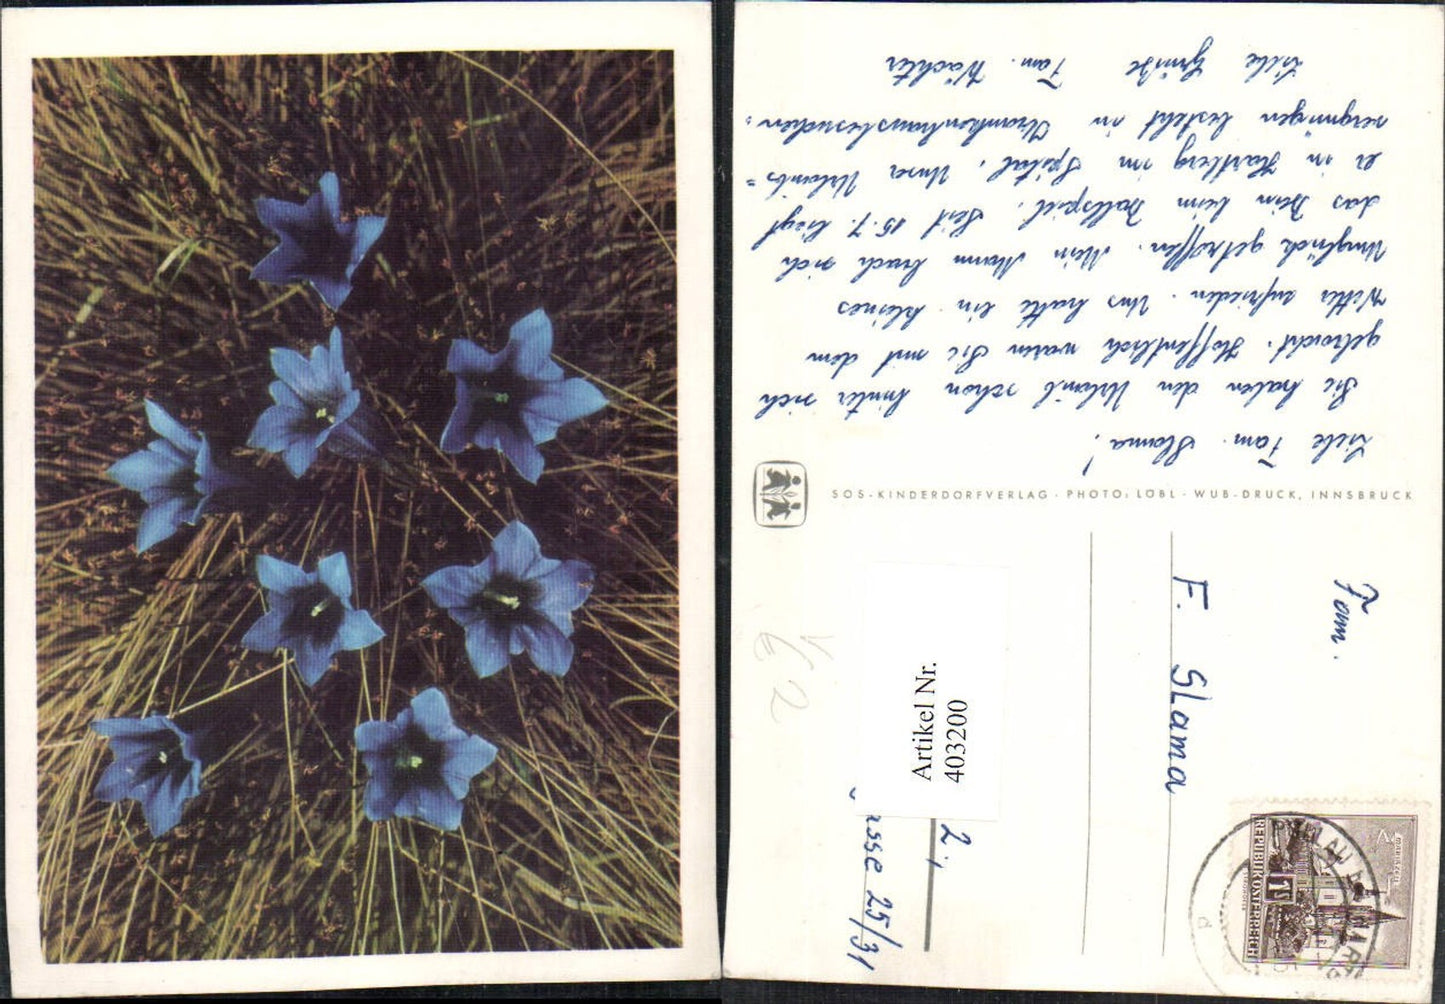 Liebe Fam. Slama!
Sie haben den Urlaub schon hinter sich
gebracht. Hoffentlich waren Sie mit dem
Wetter zufrieden. Uns hatte ein kleines
Unglück getroffen. Mein Mann brach sich
das Bein beim Ballspiel. Seit 15.7. liegt
er in Hartberg im Spital. Unser Urlaubs=
vergnügen besteht in Krankenhausbesuchen.
Liebe Grüße Fam. Wächter
SOS-KINDERDORFVERLAG · PHOTO: LÖBL · WUB-DRUCK, INNSBRUCK
Fam.
F. Slama
2.,
asse 25/31
Artikel Nr.
403200
REPUBLIK ÖSTERREICH
1S
PÖLLAU